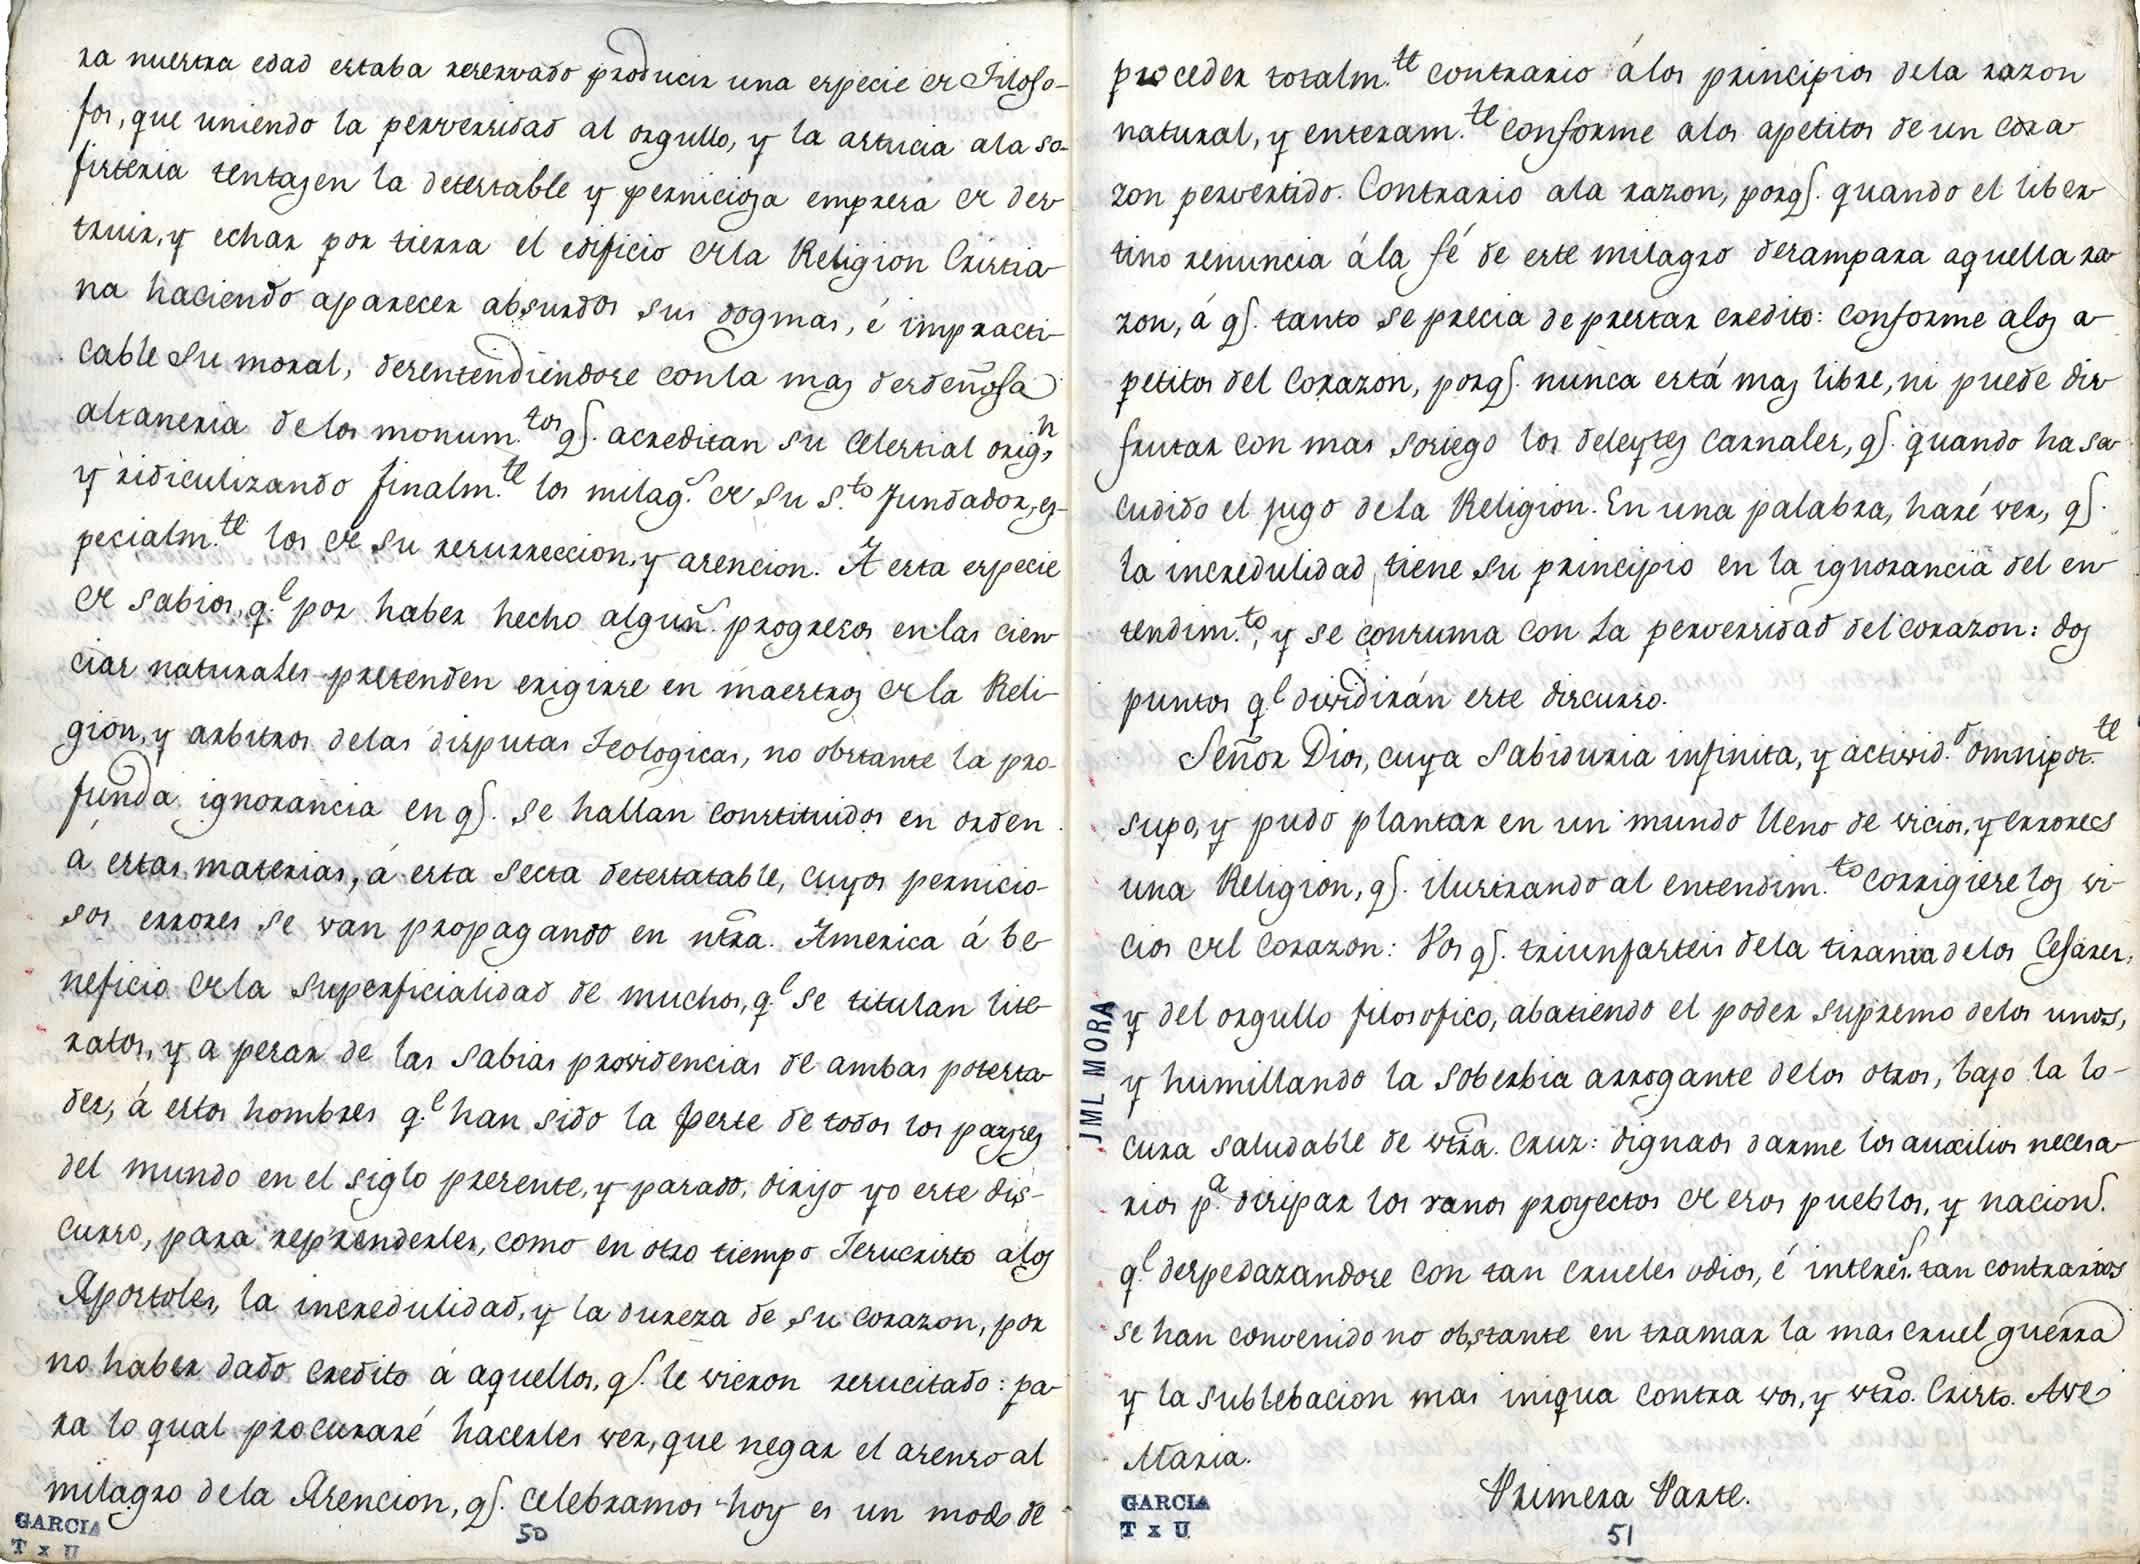 ra nuestra edad estaba reservado producir una especie de Filoso-
fos, que uniendo la perversidad al orgullo, y la astucia ala so-
fisteria tentasen la detestable y perniciosa empresa de des-
truir, y echar por tierra el edificio dela Religion Cristia-
na haciendo aparecer absurdos sus dogmas, é impracti-
cable su moral, desentendiendose conla mas desdeñosa
altaneria delos monum.tos q̃. acreditan su celestial orig.n,
y ridiculizando finalm.te los milag.s de su S.to Fundador, es-
pecialm.te los de su resurreccion, y asencion. A esta especie
de sabios, q.e por haber hecho algun.s progresos enlas cien-
cias naturales pretenden erigirse en maestros dela Reli-
gion, y arbitros delas disputas Teologicas, no obstante la pro-
funda ignorancia en q̃. se hallan constituidos en orden
á estas materias, á esta secta detestatable, cuyos pernicio-
sos errores se van propagando en ntra. America á be-
neficio dela superficialidad de muchos, q.e se titulan lite-
ratos, y a pesar de las sabias providencias de ambas potesta-
des, á estos hombres q.e han sido la peste de todos los payses
del mundo en el siglo presente, y pasado, dirijo yo este dis-
curso, para reprenderles, como en otro tiempo Jesucristo alos
Apostoles, la incredulidad, y la dureza de su corazon, por
no haber dado credito á aquellos, q̃. le vieron resucitado: pa-
ra lo qual procuraré hacerles ver, que negar el asenso al
milagro dela Asencion, q̃. celebramos hoy es un modo de
GARCIA
T x U
50
proceder totalm.te contrario álos principios dela razon
natural, y enteram.te conforme alos apetitos de un cora-
zon pervertido. Contrario ala razon, porq̃. quando el liber-
tino renuncia ála fé de este milagro desampara aquella ra-
zon, á q̃. tanto se precia de prestar credito: conforme alos a-
petitos del corazon, porq̃. nunca está mas libre, ni puede dis-
frutar con mas sosiego los deleytes carnales, q̃. quando ha sa-
cudido el jugo dela Religion. En una palabra, haré ver, q̃.
la incredulidad tiene su principio en la ignorancia del en-
tendim.to, y se consuma con la perversidad del corazon: dos
puntos q.e dividirán este discurso.
Señor Dios, cuya sabiduria infinita, y activid.d omnipot.te
supo, y pudo plantar en un mundo lleno de vicios, y errores
una Religion, q̃. ilustrando al entendim.to corrigiese los vi-
cios del corazon: Vos q̃. triunfasteis dela tirania delos Cesares,
y del orgullo filosofico, abatiendo el poder supremo delos unos,
y humillando la soberbia arrogante delos otros, bajo la lo-
cura saludable de vtra. cruz: dignaos darme los auxilios necesa-
rios p.a disipar los vanos proyectos de esos pueblos, y nacion.s
q.e despedazandose con tan crueles odios, é interes.s tan contrarios
se han convenido no obstante en tramar la mas cruel guerra
y la sublebacion mas iniqua contra vos, y vtro. Cristo. Ave
Maria.
Primera Parte.
JML MORA
GARCIA
T x U
51